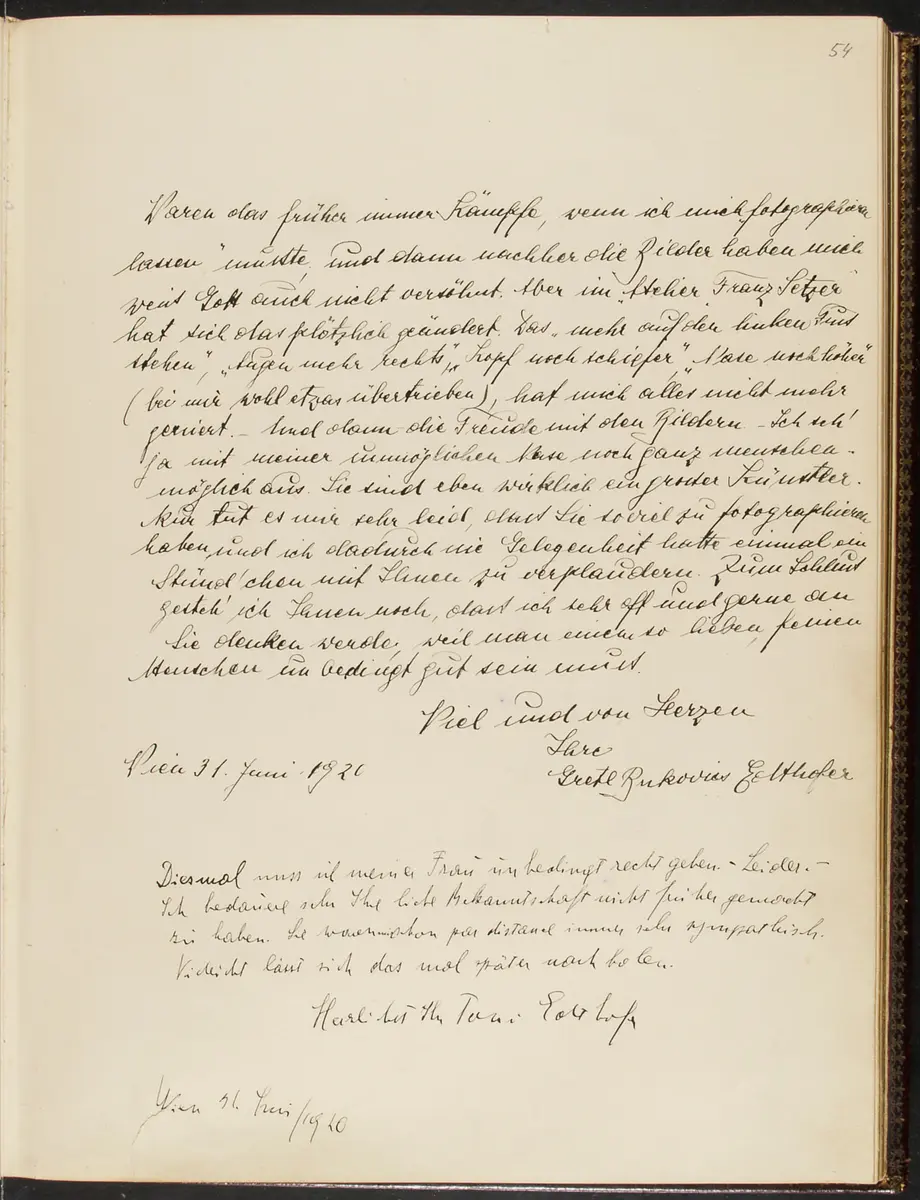 54
Waren das früher immer Kämpfe, wenn ich mich „fotographieren
lassen" musste, und dann nachher die Bilder haben mich
weiss Gott auch nicht versöhnt. Aber im „Atelier Franz Setzer"
hat sich das plötzlich geändert. Das „mehr auf den linken Fuss
stehen", „Augen mehr rechts", „Kopf noch schiefer", „Nase noch höher"
(bei mir wohl etwas übertrieben), hat mich alles nicht mehr
geniert. – Und dann die Freude mit den Bildern – Ich seh'
ja mit meiner unmöglichen Nase noch ganz menschen-
möglich aus. Sie sind eben wirklich ein grosser Künstler.
Nur tut es mir sehr leid, dass Sie soviel zu fotographieren
haben, und ich dadurch nie Gelegenheit hatte einmal ein
Stünd'chen mit Ihnen zu verplaudern. Zum Schluss
gesteh' ich Ihnen noch, dass ich sehr oft und gerne an
Sie denken werde, weil man einem so lieben, feinen
Menschen unbedingt gut sein muss.
Viel und von Herzen
Ihre
Wien 31. Juni 1920
Gretl Bukovics Edthofer
Diesmal muss ich meiner Frau unbedingt recht geben. – Leider. –
Ich bedauere sehr Ihre liebe Bekanntschaft nicht früher gemacht
zu haben. Sie waren schon par distance immer sehr sympathisch.
Vieleicht lässt sich das mal später nach holen.
Herzlichst Ihr Toni Edthofer
Wien 31. Juni/1920